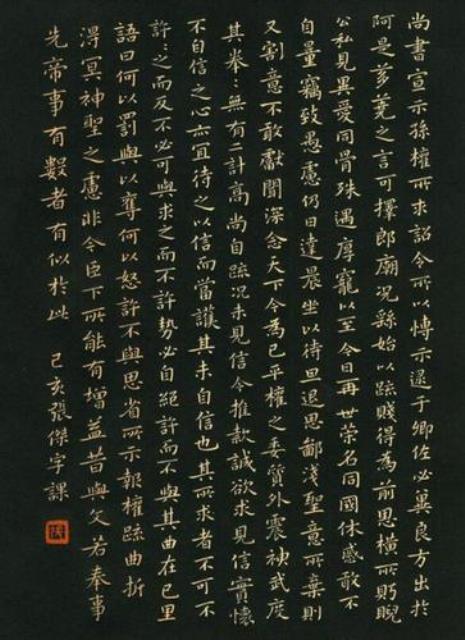 尚書宣示孫權所求詔令所以愽示逮于卿佐必冀良方出於
阿是芻蕘之言可擇郎廟況繇始以疏賤得為前思橫所眄睨
公私見異愛同骨殊遇厚寵以至今日再世荣名同國休慼敢不
自量竊致愚慮仍日達晨坐以待旦退思鄙淺聖意所棄則
又割意不敢獻聞深念天下今為已平權之委質外震神武度
其拳〻無有二計高尚自疏況未見信今推款誠欲求見信實懷
不自信之心亦冝待之以信而當護其未自信也其所求者不可不
許〻之而反不必可與求之而不許勢必自絕許而不與其曲在已里
語曰何以罰與以奪何以怒許不與思省所示報權疏曲折
得冥神聖之慮非今臣下所能有增益昔與文若奉事
先帝事有數者有似於此 己亥張傑字課